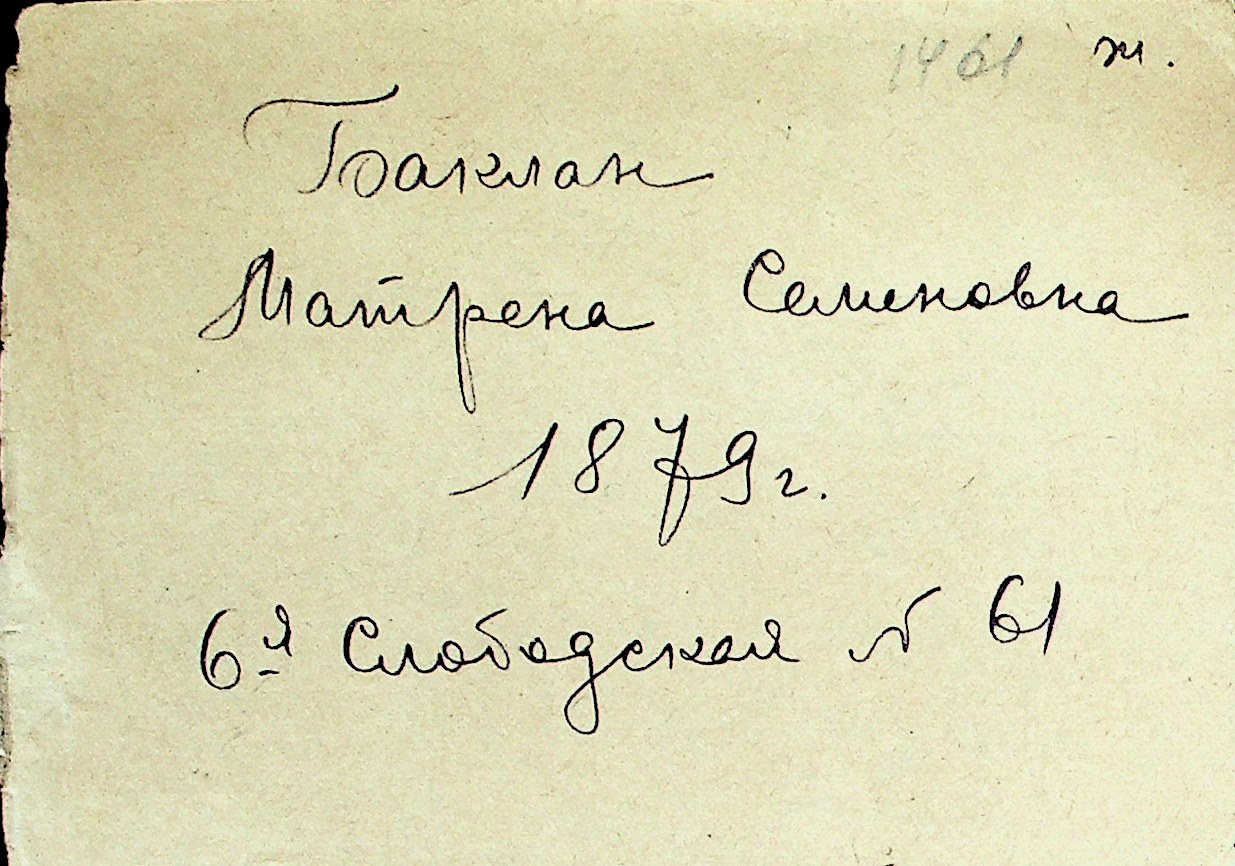 1461 ж.
Баклан
Матрена Семеновна
1879 г.
6-я Слободская № 61